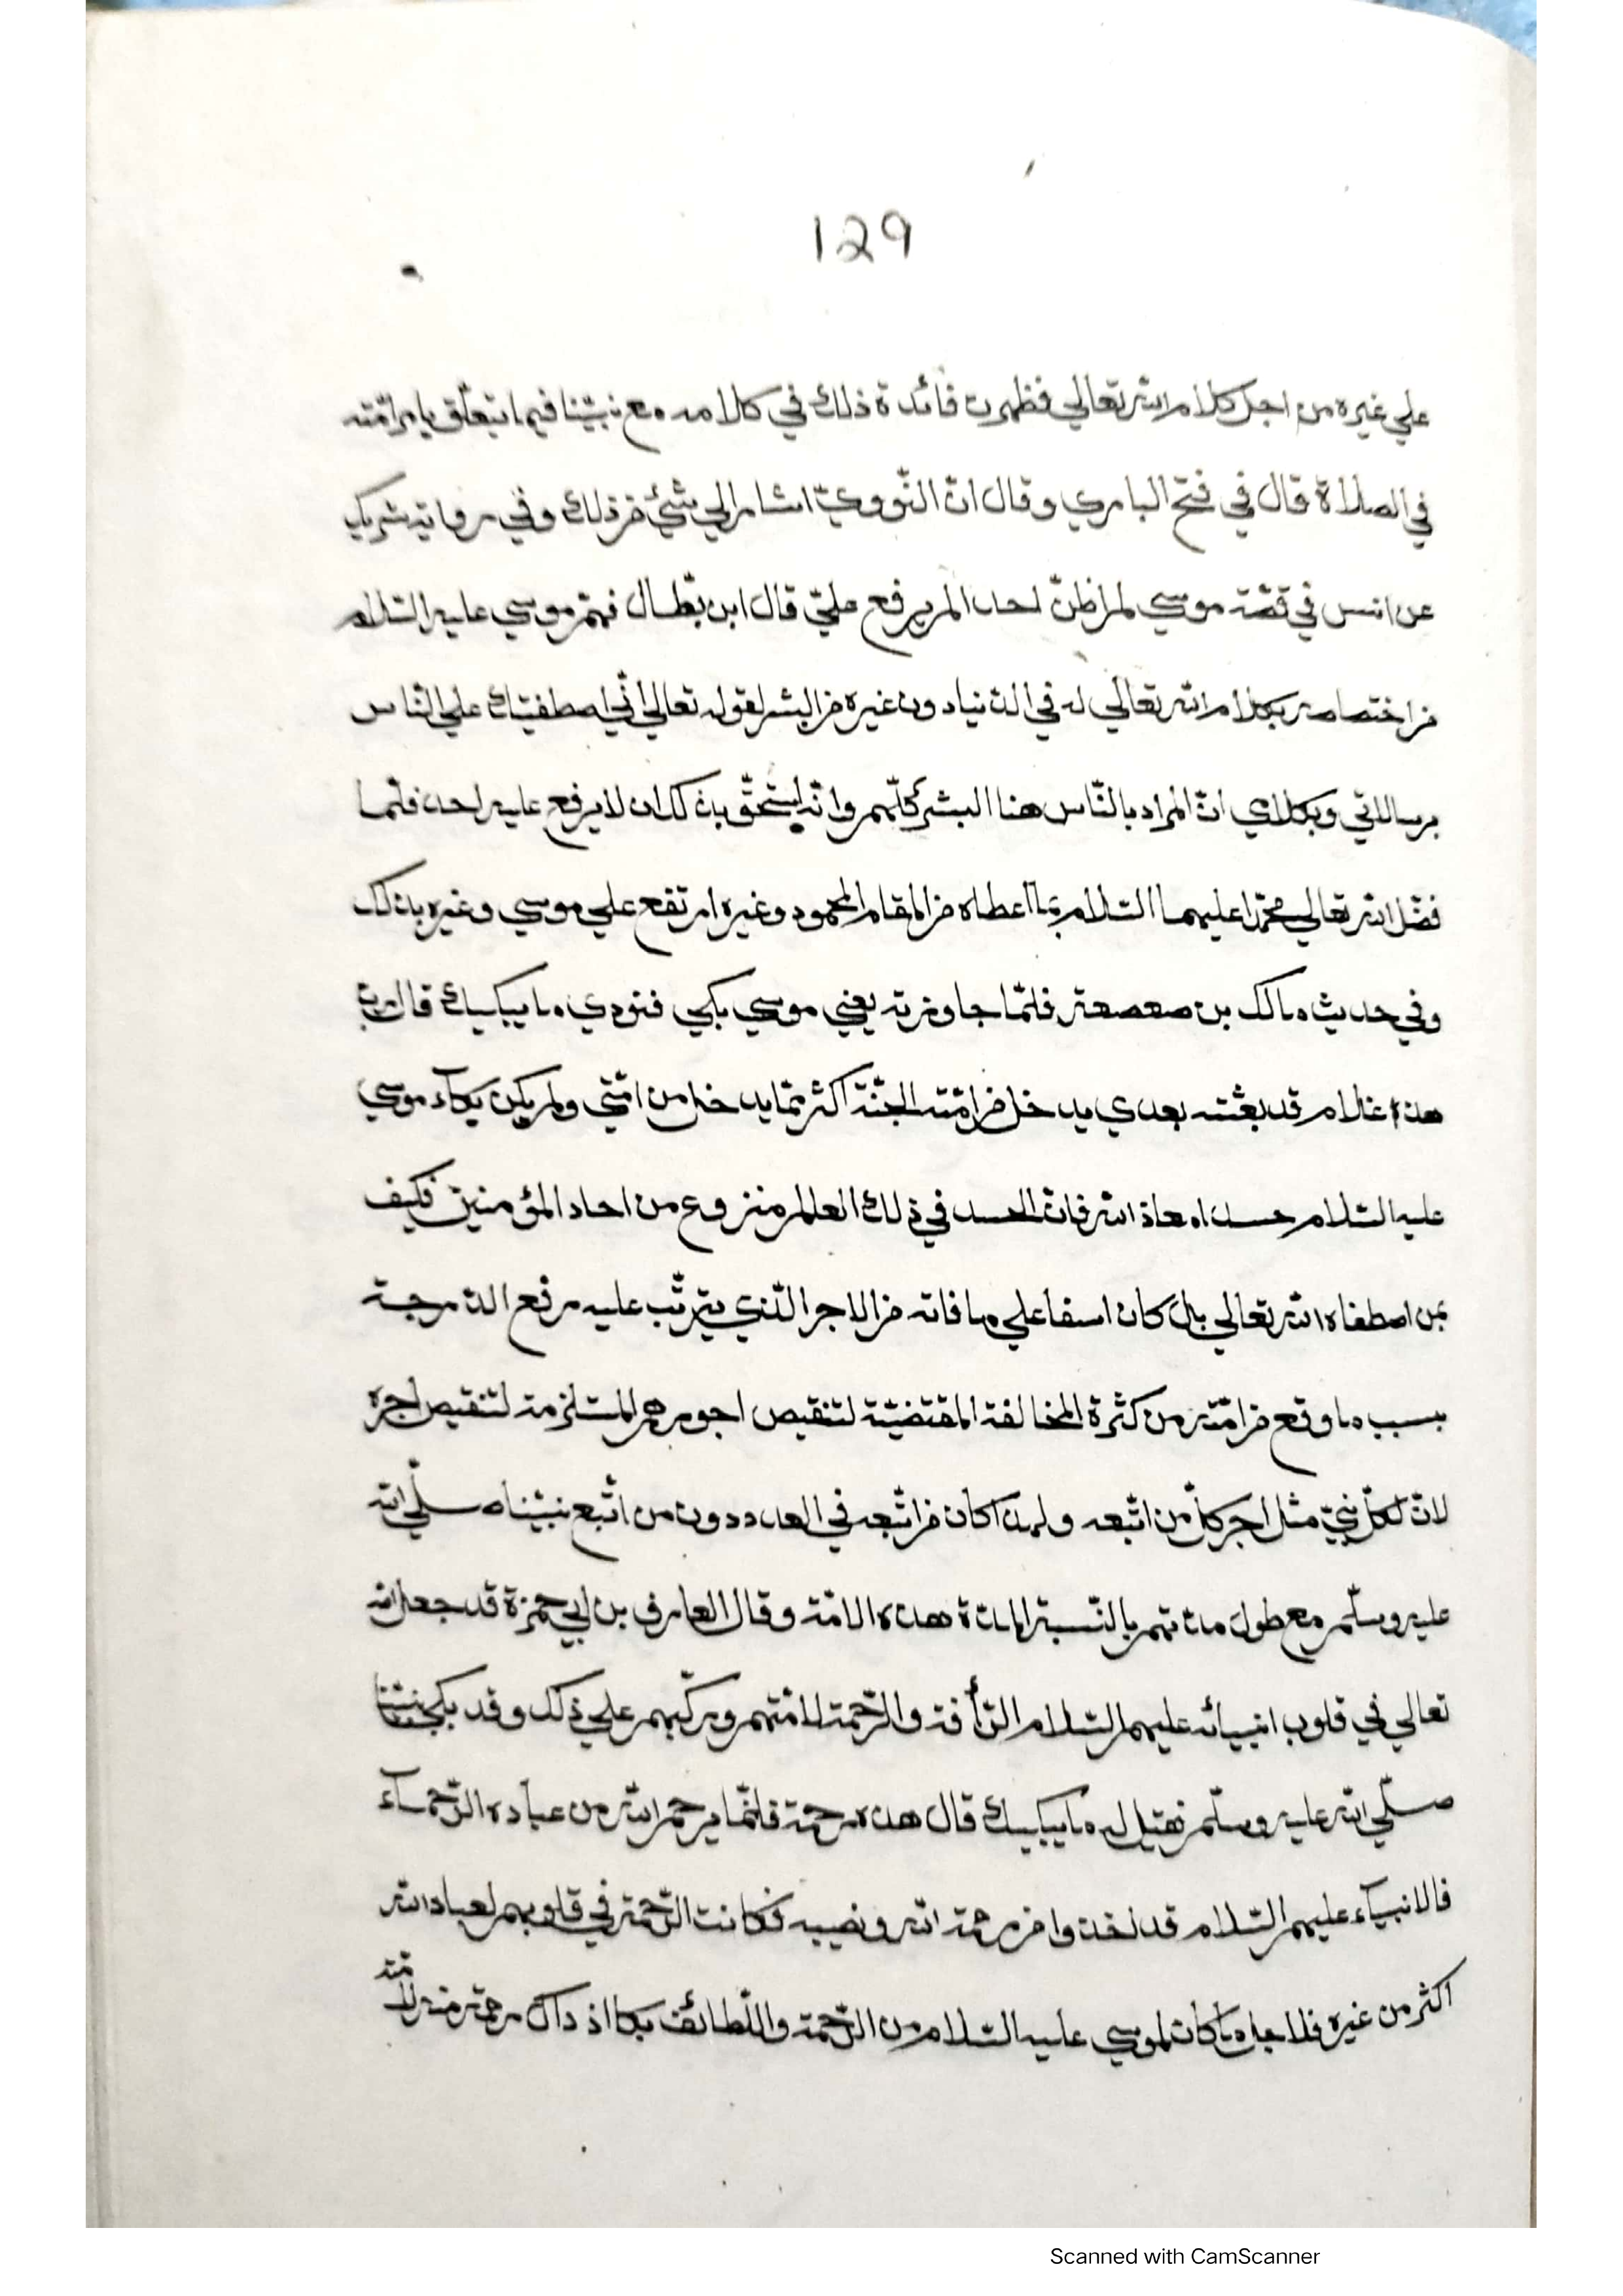 129
علي غيره من اجل كلام الله تعالي فظهرت فائدة ذلك في كلامه مع نبيّنا فيما يتعلّق بامر امّته
في الصلاة قال في فتح الباري وقال انّ النّوويّ اشار الي شيئ من ذلك وفي رواية شريك
عن انس في قصّة موسي لم اظنّ احدا لم يرفع عليّ قال ابن بطّال فهم موسي عليه السّلام
من اختصاصه بكلام الله تعالي له في الدّنيا دون غيره من البشر لقوله تعالي انّي اصطفيتك علي النّاس
برسالاتي وبكلامي انّ المراد بالنّاس هنا البشر كلّهم وانّه استحقّ بذلك ان لا يرفع عليه احد فلمّا
فضّل الله تعالي محمّدا عليهما السّلام بما اعطاه من المقام المحمود وغيره ارتفع علي موسي وغيره بذلك
وفي حديث مالك بن صعصعة فلمّا جاوزته يعني موسي بكي فنودي ما يبكيك قال ربّ
هذا غلام قد بعثته بعدي يدخل من امّته الجنّة اكثر ممّا يدخل من امّتي ولم يكن بكآء موسي
عليه السّلام حسدا معاذ الله فانّ الحسد في ذلك العالم منزوع من احاد المؤمنين فكيف
بمن اصطفاه الله تعالي بل كان اسفا علي ما فاته من الاجر الّذي يترتّب عليه رفع الدّرجة
بسبب ما وقع من امّته من كثرة المخالفة المقتضيّة لتنقيص اجورهم المستلزمة لتنقيص اجره
لانّ لكلّ نبيّ مثل اجر كلّ من اتّبعه ولهذا كان من اتّبعه في العدد دون من اتّبع نبيّنا صلّي الله
عليه وسلّم مع طول مدّتهم بالنّسبة لمدّة هذه الامّة وقال العارف بن ابي جمزة قد جعل الله
تعالي في قلوب انبيائه عليهم السّلام الرّأفة والرّحمة لامّتهم وركّبهم علي ذلك وقد بكي نبيّنا
صلّي الله عليه وسلّم فقيل له ما يبكيك قال هذه رحمة فانّما يرحم الله من عباده الرّحمآء
فالانبيآء عليهم السّلام قد اخذوا من رحمة الله ونصيبه فكانت الرّحمة في قلوبهم لعباد الله
اكثر من غيره فلاجل ما كان لموسي عليه السّلام من الرّحمة واللّطائف بكا اذ ذاك رحمة منه لامّته
Scanned with CamScanner